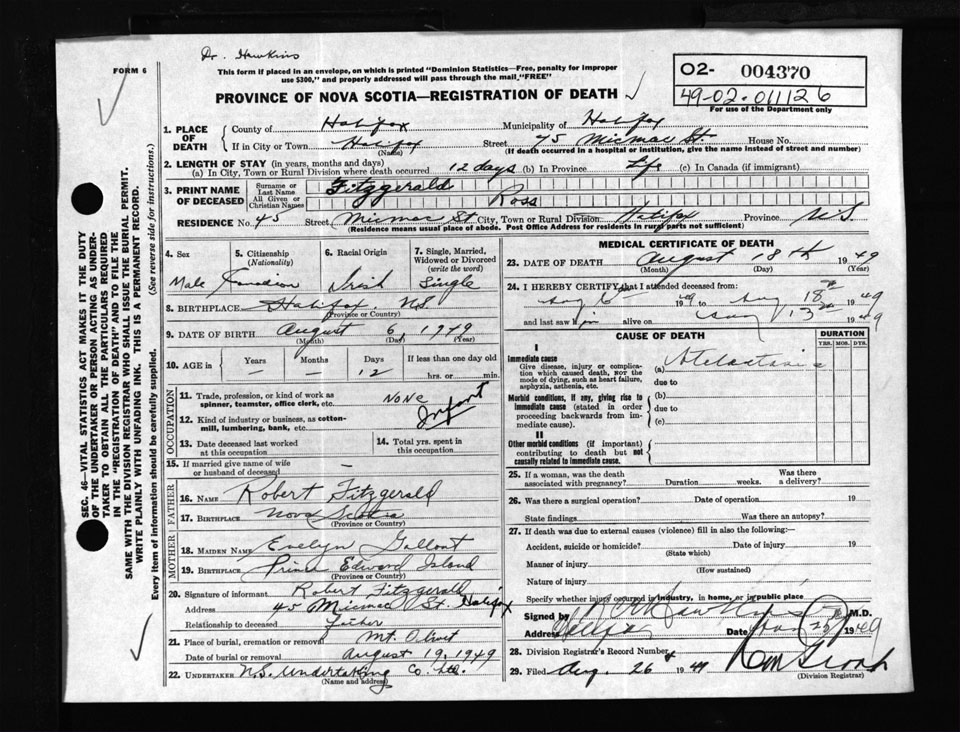 Dr. Hawkins
FORM 6
This form if placed in an envelope, on which is printed "Dominion Statistics—Free, penalty for improper
use $300," and properly addressed will pass through the mail "FREE"
PROVINCE OF NOVA SCOTIA—REGISTRATION OF DEATH
O2- 004370
49-02-011126
For use of the Department only
1. PLACE OF DEATH
County of Halifax Municipality of Halifax
If in City or Town Halifax Street 45 Micmac St. House No.
(Name) (If death occurred in a hospital or institution, give the name instead of street and number)
2. LENGTH OF STAY (in years, months and days)
(a) In City, Town or Rural Division where death occurred 12 days (b) In Province Life (c) In Canada (if immigrant)
3. PRINT NAME OF DECEASED
Surname or Last Name Fitzgerald
All Given or Christian Names Ross
RESIDENCE No. 45 Street Micmac St City, Town or Rural Division Halifax Province N.S.
(Residence means usual place of abode. Post Office Address for residents in rural parts not sufficient)
4. Sex Male
5. Citizenship (Nationality) Canadian
6. Racial Origin Irish
7. Single, Married, Widowed or Divorced (write the word) Single
8. BIRTHPLACE Halifax, NS
(Province or Country)
9. DATE OF BIRTH August 6, 1949
(Month) (Day) (Year)
10. AGE in Years — Months — Days 12 If less than one day old hrs. or min.
OCCUPATION
11. Trade, profession, or kind of work as spinner, teamster, office clerk, etc. NONE
12. Kind of industry or business, as cotton-mill, lumbering, bank, etc. Infant
13. Date deceased last worked at this occupation
14. Total yrs. spent in this occupation
15. If married give name of wife or husband of deceased —
FATHER
16. NAME Robert Fitzgerald
17. BIRTHPLACE Nova Scotia
(Province or Country)
MOTHER
18. MAIDEN NAME Evelyn Gallant
19. BIRTHPLACE Prince Edward Island
(Province or Country)
20. Signature of informant Robert Fitzgerald
Address 45 Micmac St. Halifax
Relationship to deceased Father
21. Place of burial, cremation or removal Mt. Olivet
Date of burial or removal August 19, 1949
22. UNDERTAKER N.S. Undertaking Co. Ltd.
(Name and address)
MEDICAL CERTIFICATE OF DEATH
23. DATE OF DEATH August 18th 1949
(Month) (Day) (Year)
24. I HEREBY CERTIFY that I attended deceased from:
Aug 6th 1949 to Aug 18th 1949
and last saw him alive on Aug 1949
CAUSE OF DEATH
DURATION
YRS. MOS. DYS.
I
Immediate cause
Give disease, injury or complication which caused death, not the mode of dying, such as heart failure, asphyxia, asthenia, etc.
(a) Atelectasis
due to
Morbid conditions, if any, giving rise to immediate cause (stated in order proceeding backwards from immediate cause).
(b)
due to
(c)
II
Other morbid conditions (if important) contributing to death but not causally related to immediate cause.
25. If a woman, was the death associated with pregnancy? Duration weeks. Was there a delivery?
26. Was there a surgical operation? Date of operation 19
State findings Was there an autopsy?
27. If death was due to external causes (violence) fill in also the following:—
Accident, suicide or homicide? Date of injury 19
(State which)
Manner of injury
(How sustained)
Nature of injury
Specify whether injury occurred in industry, in home, or in public place
Signed by M.D.
Address Halifax Date 1949
28. Division Registrar's Record Number
29. Filed Aug. 26 1949
(Division Registrar)
SEC. 46—VITAL STATISTICS ACT MAKES IT THE DUTY
OF THE UNDERTAKER OR PERSON ACTING AS UNDER-
TAKER TO OBTAIN ALL THE PARTICULARS REQUIRED
IN THE "REGISTRATION OF DEATH" AND TO FILE THE
SAME WITH THE DIVISION REGISTRAR WHO SHALL ISSUE THE BURIAL PERMIT.
WRITE PLAINLY WITH UNFADING INK. THIS IS A PERMANENT RECORD.
Every item of information should be carefully supplied. (See reverse side for instructions.)